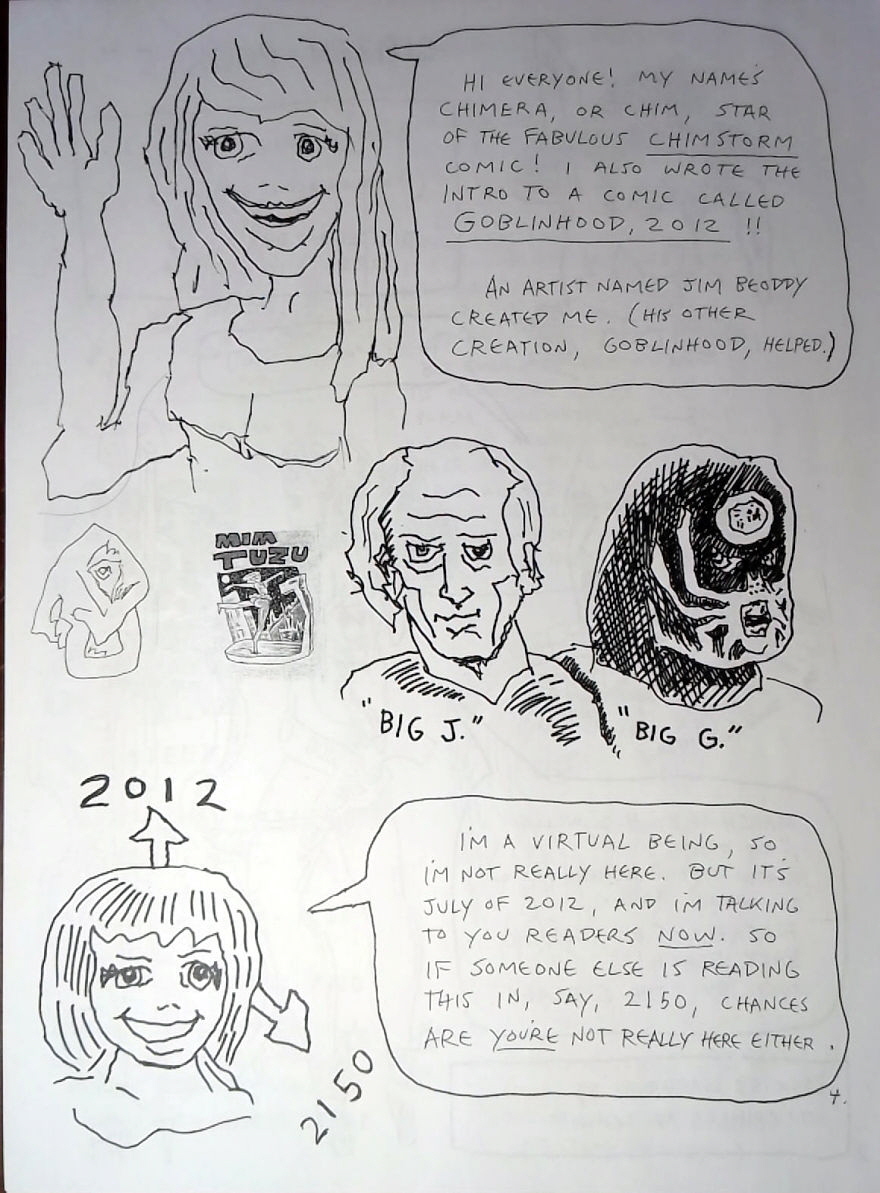 HI EVERYONE! MY NAME'S
CHIMERA, OR CHIM, STAR
OF THE FABULOUS CHIMSTORM
COMIC! I ALSO WROTE THE
INTRO TO A COMIC CALLED
GOBLINHOOD, 2012 !!
AN ARTIST NAMED JIM BEODDY
CREATED ME. (HIS OTHER
CREATION, GOBLINHOOD, HELPED.)
MIM
TUZU
"BIG J."
"BIG G."
2012
I'M A VIRTUAL BEING, SO
I'M NOT REALLY HERE. BUT IT'S
JULY OF 2012, AND I'M TALKING
TO YOU READERS NOW. SO
IF SOMEONE ELSE IS READING
THIS IN, SAY, 2150, CHANCES
ARE YOU'RE NOT REALLY HERE EITHER.
2150
4.